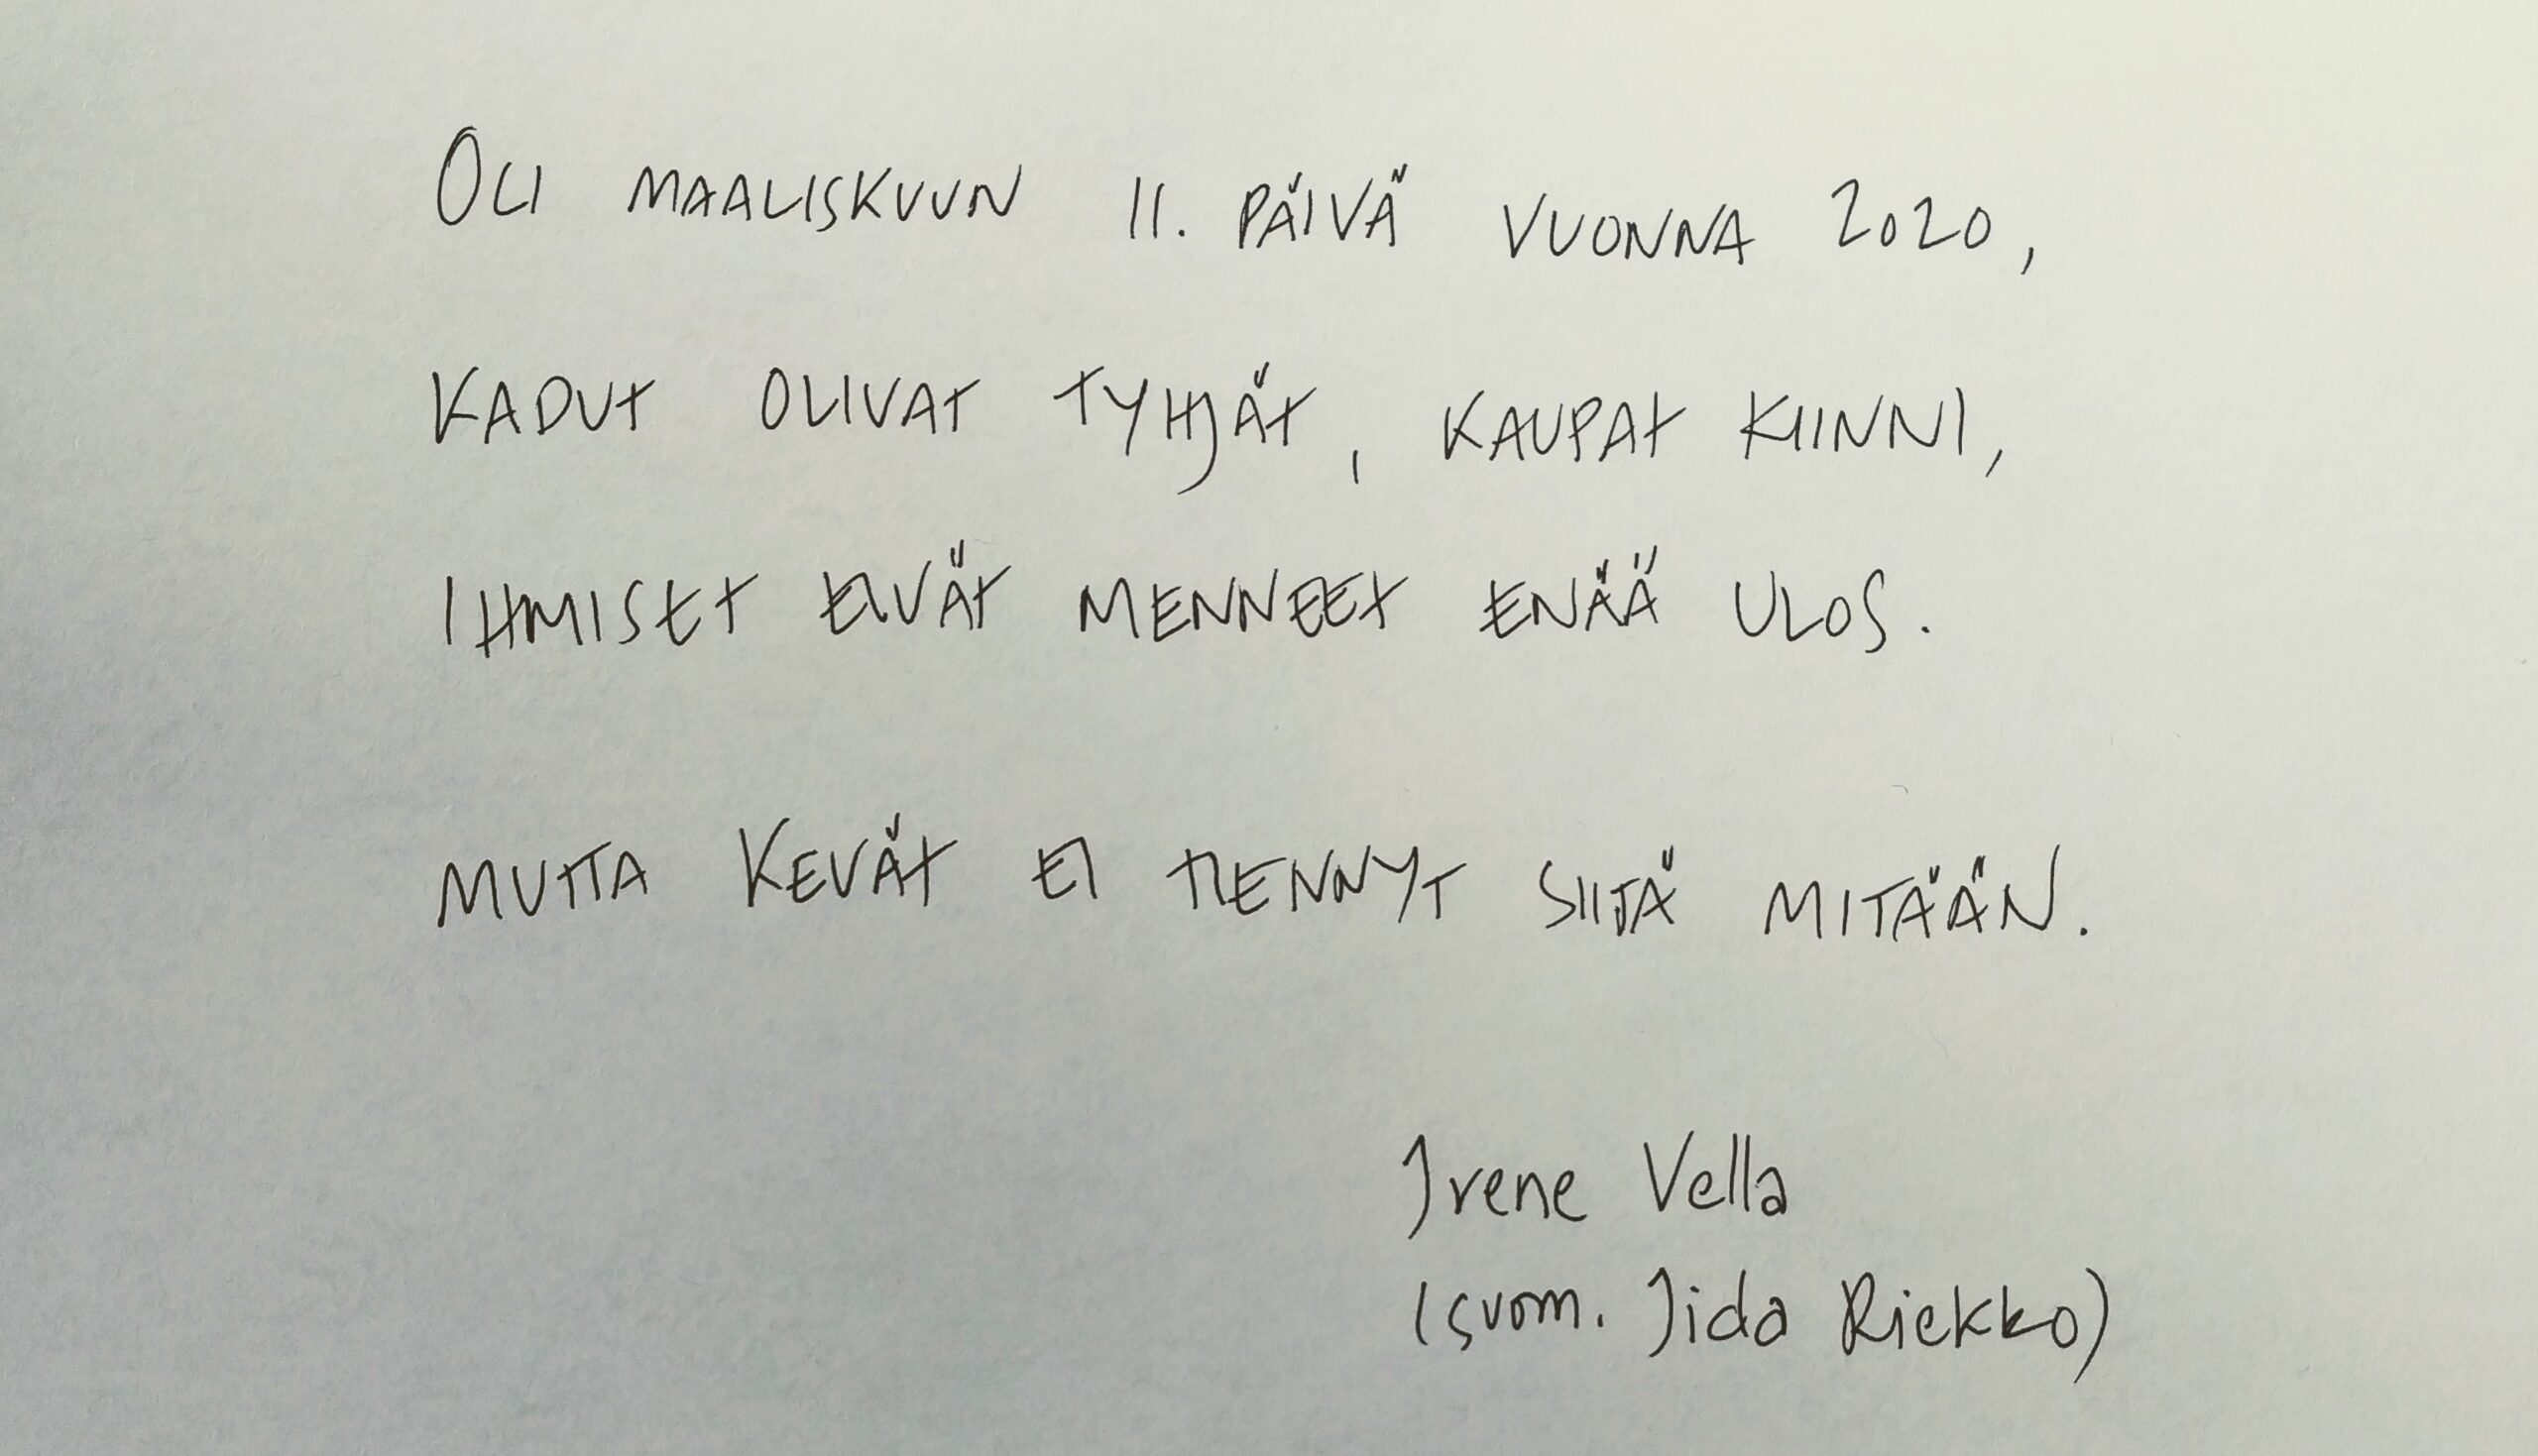 OLI MAALISKUUN 11. PÄIVÄ VUONNA 2020,
KADUT OLIVAT TYHJÄT, KAUPAT KIINNI,
IHMISET EIVÄT MENNEET ENÄÄ ULOS.
MUTTA KEVÄT EI TIENNYT SIITÄ MITÄÄN.
Irene Vella
(suom. Iida Riekko)